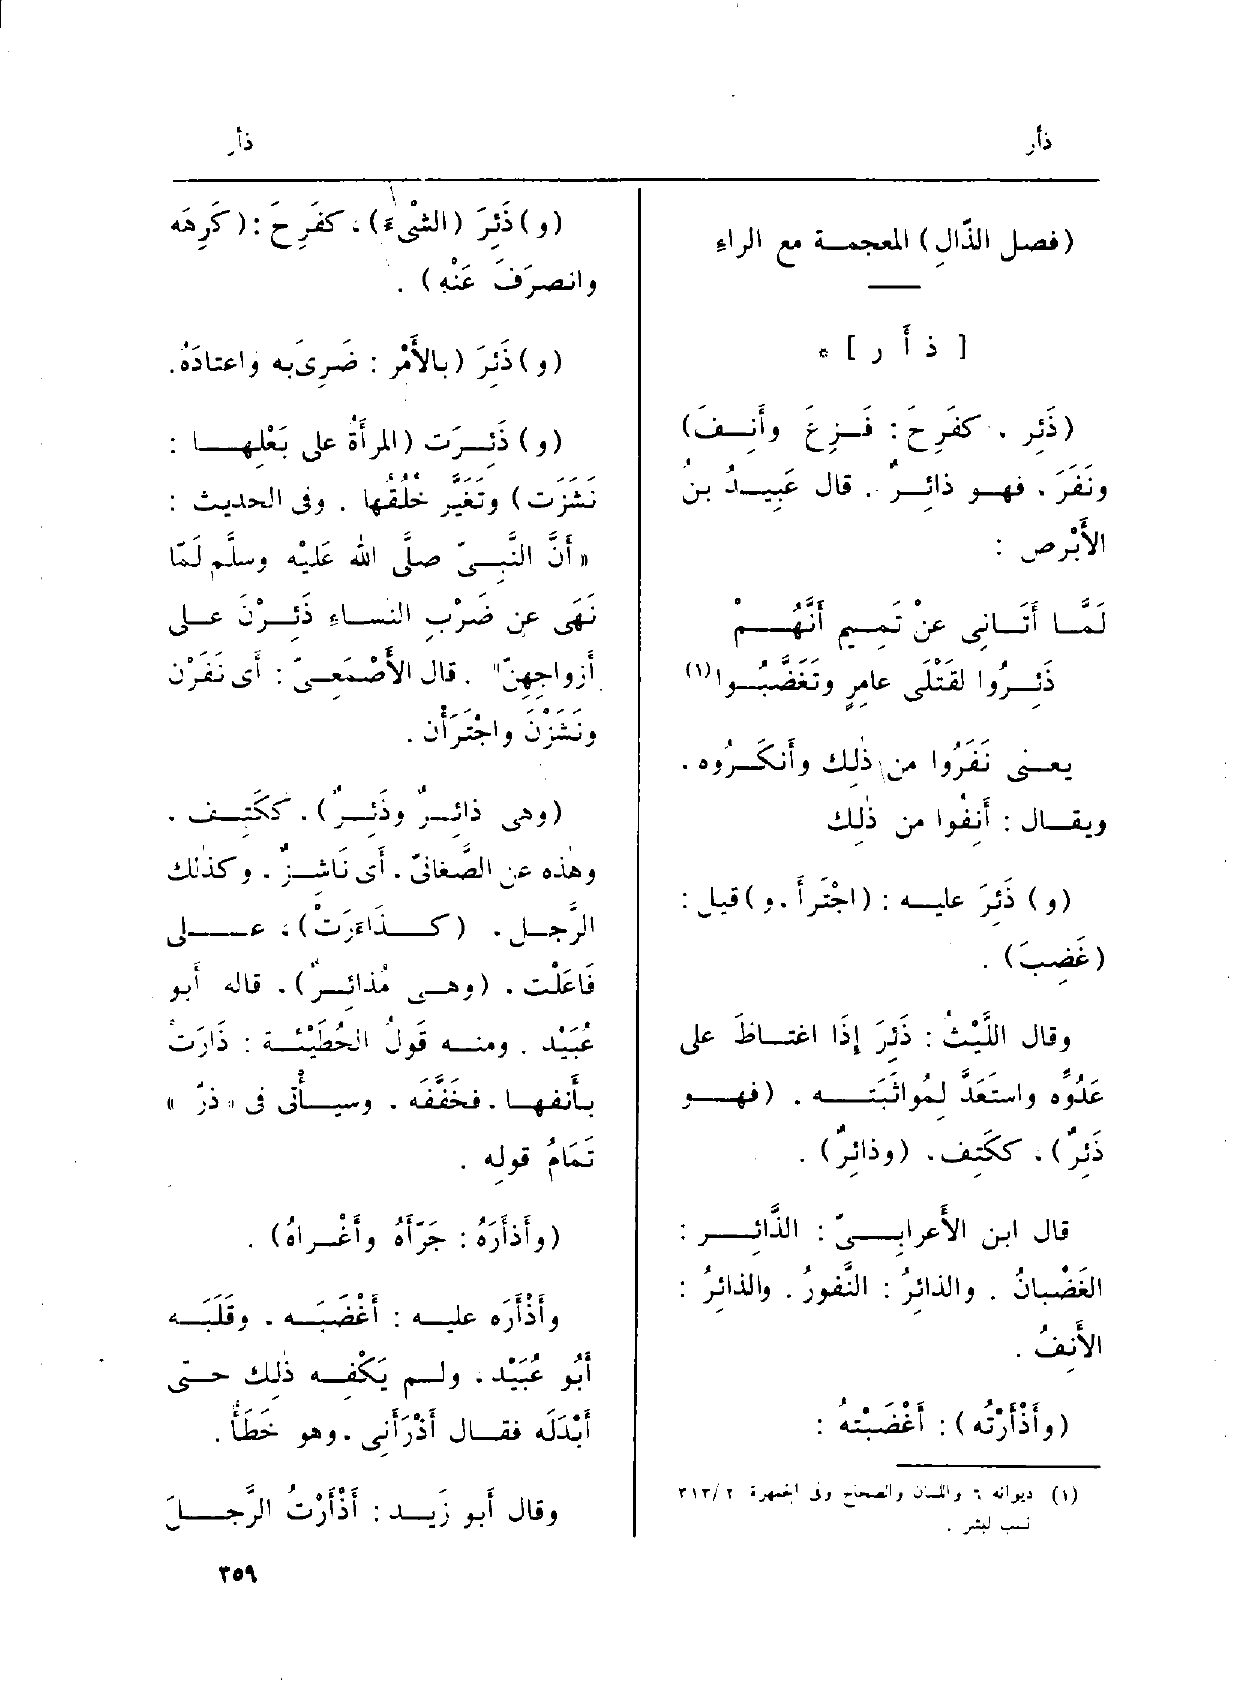 ذأر
ذأر
(فصل الذّالِ) المعجمة مع الراءِ
[ ذ أ ر ] *
(ذَئِر ، كفَرِحَ: فَزِعَ وأَنِفَ)
ونَفَرَ . فهو ذائِرٌ . قال عَبِيدُ بنُ
الأَبْرص :
لَمَّا أَتَانِى عنْ تَمِيمٍ أَنَّهُمْ
ذَئِرُوا لقَتْلَى عامِرٍ وتَغَضَّبُوا(١)
يعنى نَفَرُوا من ذٰلِك وأَنكَرُوه .
ويقال : أَنِفُوا من ذٰلِك
(و) ذَئِرَ عليه : (اجْتَرأَ ، و) قيل :
(غَضِبَ) .
وقال اللَّيْثُ : ذَئِرَ إِذَا اغتاظَ على
عَدُوِّه واستَعَدَّ لمُواثَبَتِه . (فهو
ذَئِرٌ) ، ككَتِف ، (وذائِرٌ) .
قال ابن الأَعرابِىّ : الذَّائِر :
الغَضْبانُ . والذائِرُ : النَّفُورُ . والذائِرُ :
الأَنِفُ .
(وأَذْأَرْتُه) : أَغْضَبْتهُ :
(١) ديوانه ٦ واللسان والصحاح وفى الجمهرة ٣١٣/٢
نسب لبشر .
(و) ذَئِرَ (الشْىءَ) ، كفَرِحَ : (كَرِهَه
وانصرَفَ عَنْهِ) .
(و) ذَئِرَ (بالأَمْرِ : ضَرِىَ به واعتادَهُ .
(و) ذَئِرَت (المرأَةُ على بَعْلِها :
نَشَزَت) وتَغَيَّر خُلُقُها . وفى الحديث :
« أَنَّ النَّبِىّ صلَّى الله عَلَيْه وسلَّم لَمّا
نَهَى عن ضَرْبِ النساءِ ذَئِرْنَ على
أَزواجِهِنّ" . قال الأَصْمَعِىّ : أَى نَفَرْن
ونَشَزْنَ واجْتَرَأْن .
(وهى ذائِرٌ وذَئِرٌ) ، ككَتِف .
وهٰذه عن الصَّغانىّ ، أَى نَاشِزٌ . وكذٰلك
الرَّجل . (كذاءَرَتْ) ، على
فَاعَلْت . (وهى مُذائِرٌ) . قاله أَبو
عُبَيْد . ومنه قولُ الحُطَيْئَة : ذَارَتْ
بأَنفِها . فخَفَّفَه . وسيأْتى فى « ذرّ »
تَمَامُ قوله .
(وأَذأَرَهُ : جَرّأَهُ وأَغْراهُ) .
وأَذْأَرَه عليه : أَغْضَبَه . وقَلَبَه
أَبُو عُبَيْد . ولم يَكْفِه ذٰلِك حتى
أَبْدَلَه فقال أَذْرَأَنِى . وهو خَطَأٌ .
وقال أَبو زَيد : أَذْأَرْتُ الرَّجلَ
٣٥٩